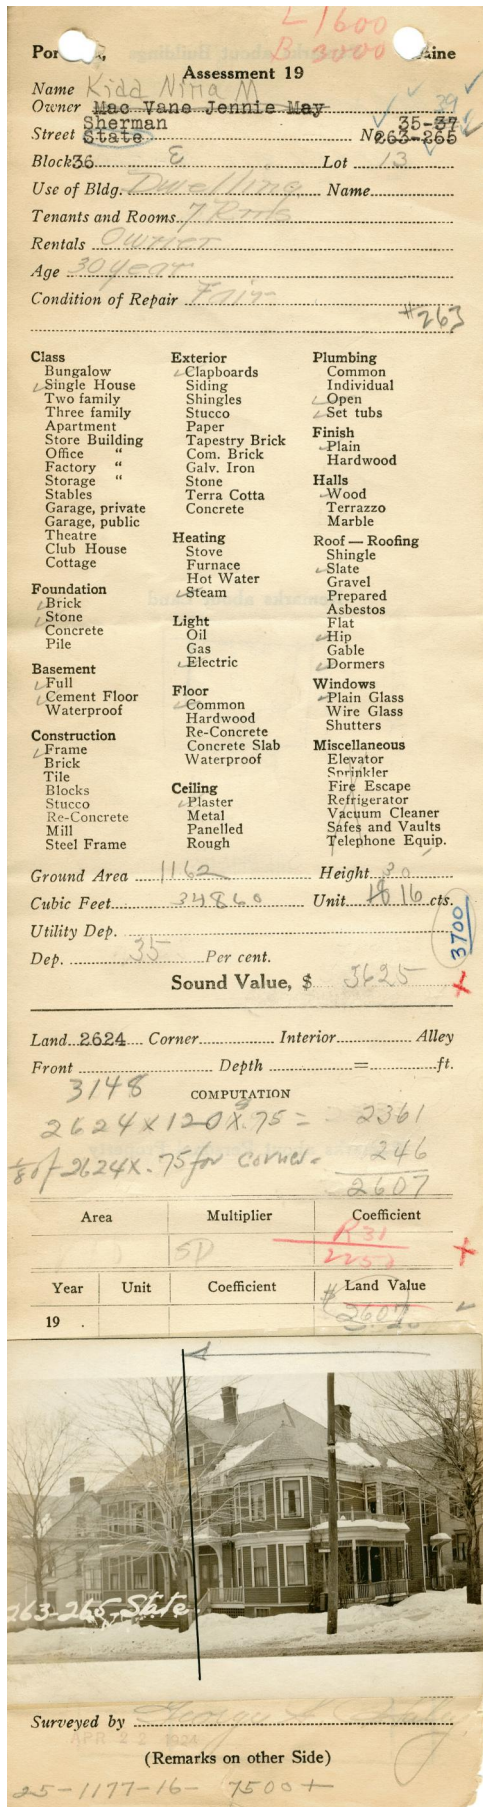 L 1600
B 3000
Por , aine
Assessment 19
Name Kidd Nina M
Owner Mac Vane Jennie May 39
Sherman 35-37
Street State No. 263-265
Block 36 E Lot 13
Use of Bldg. Dwelling Name
Tenants and Rooms 7 Rms
Rentals Owner
Age 30 year
Condition of Repair Fair
#263
Class
Bungalow
Single House
Two family
Three family
Apartment
Store Building
Office "
Factory "
Storage "
Stables
Garage, private
Garage, public
Theatre
Club House
Cottage
Foundation
Brick
Stone
Concrete
Pile
Basement
Full
Cement Floor
Waterproof
Construction
Frame
Brick
Tile
Blocks
Stucco
Re-Concrete
Mill
Steel Frame
Exterior
Clapboards
Siding
Shingles
Stucco
Paper
Tapestry Brick
Com. Brick
Galv. Iron
Stone
Terra Cotta
Concrete
Heating
Stove
Furnace
Hot Water
Steam
Light
Oil
Gas
Electric
Floor
Common
Hardwood
Re-Concrete
Concrete Slab
Waterproof
Ceiling
Plaster
Metal
Panelled
Rough
Plumbing
Common
Individual
Open
Set tubs
Finish
Plain
Hardwood
Halls
Wood
Terrazzo
Marble
Roof — Roofing
Shingle
Slate
Gravel
Prepared
Asbestos
Flat
Hip
Gable
Dormers
Windows
Plain Glass
Wire Glass
Shutters
Miscellaneous
Elevator
Sprinkler
Fire Escape
Refrigerator
Vacuum Cleaner
Safes and Vaults
Telephone Equip.
Ground Area 1162 Height 30
Cubic Feet 34860 Unit 18 16 cts.
Utility Dep.
3700
Dep. 35 Per cent.
Sound Value, $ 3625
Land 2624 Corner Interior Alley
Front Depth = ft.
3148
COMPUTATION
2624 x 120 x .75 = 2361
1/8 of 2624 x .75 for corner = 246
2607
Area Multiplier Coefficient
R31
SD 2252
Year Unit Coefficient Land Value
19 . $ 2607
263-265-State
Surveyed by George
APR 22 1924
(Remarks on other Side)
25-1177-16- 7500+